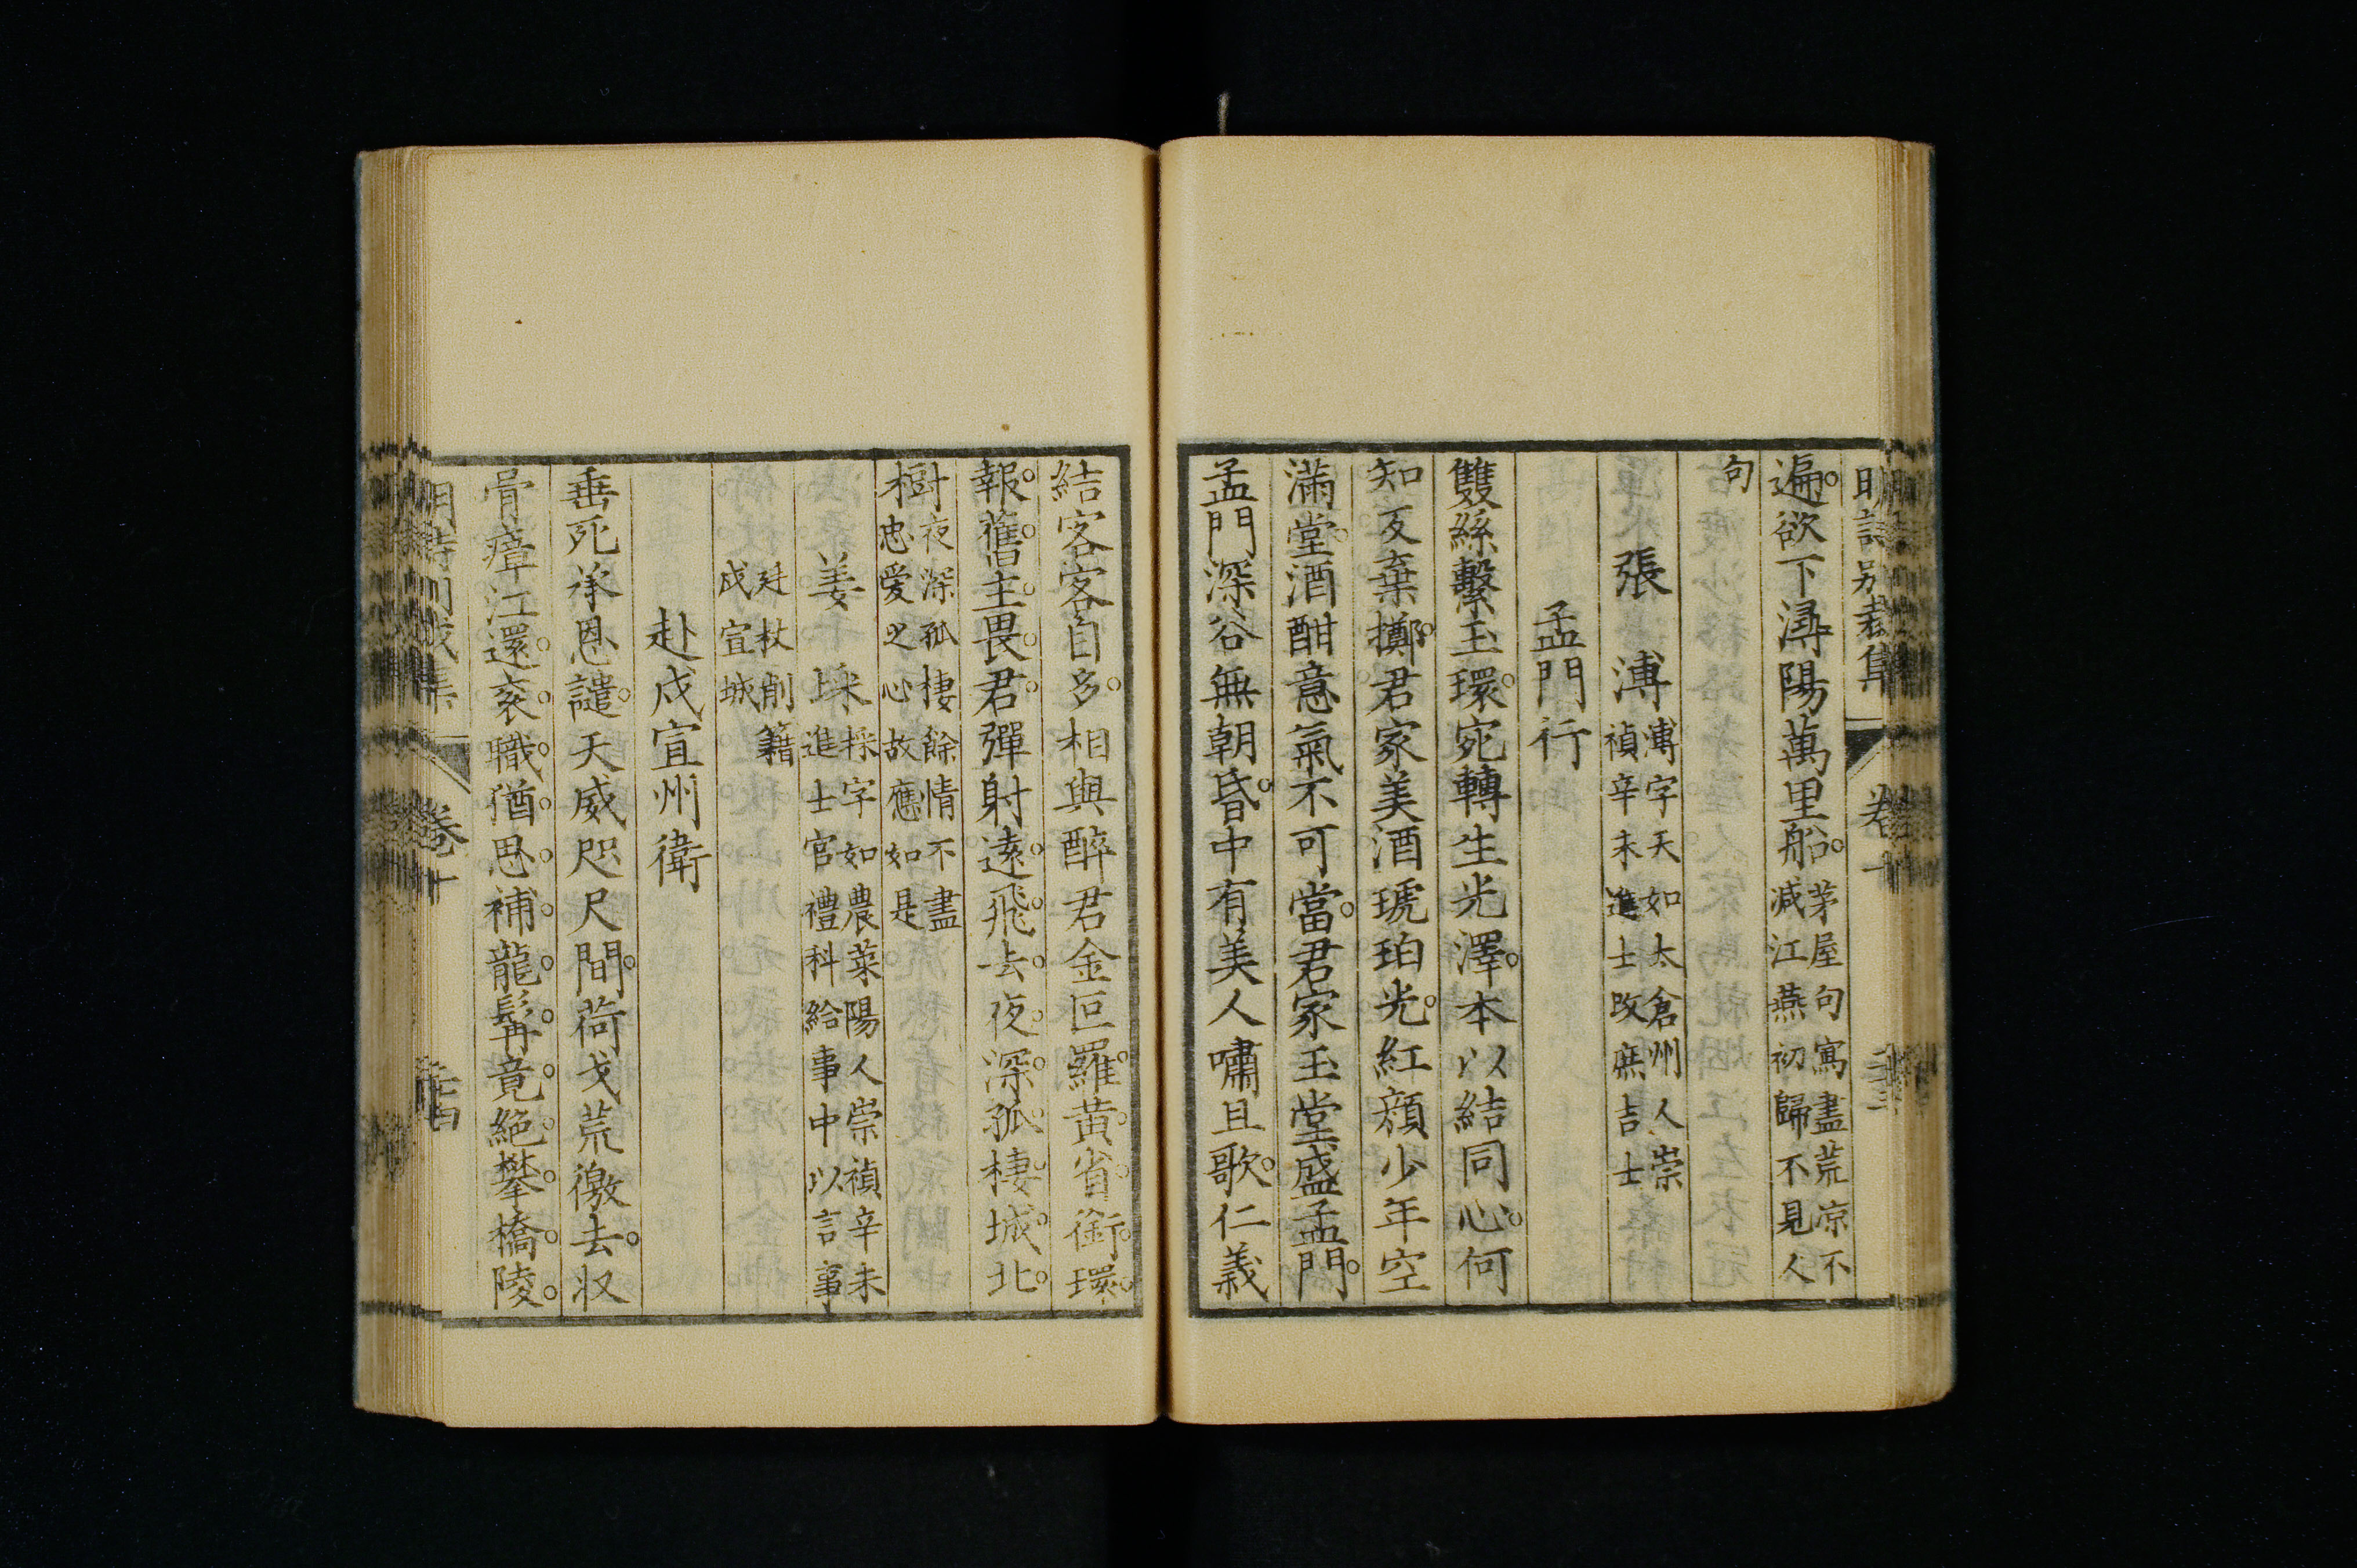 明詩別裁集 卷十
遍欲下潯陽萬里船茅屋句寫盡荒凉不減江燕初歸不見人
句
張溥溥字天如太倉州人崇禎辛未進士改庶吉士
孟門行
雙絲繫玉環宛轉生光澤本以結同心何
知反棄擲君家美酒琥珀光紅顏少年空
滿堂酒酣意氣不可當君家玉堂盛孟門
孟門深谷無朝昏中有美人嘯且歌仁義
結客客自多相與醉君金叵羅黃省銜環
報舊主畏君彈射遠飛去夜深孤棲城北
樹夜深孤棲餘情不盡忠爱之心故應如是
姜埰埰字如農萊陽人崇禎辛未進士官禮科給事中以言事
廷杖削籍戍宣城
赴戍宣州衛
垂死承恩譴天威咫尺間荷戈荒徼去収
骨瘴江還衮職猶思補龍髯竟絕攀橋陵
明詩別裁集 卷十